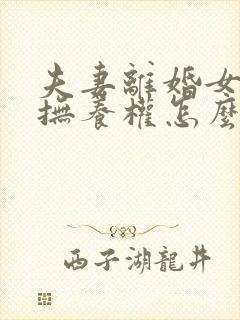 夫妻離婚女
撫養權怎麼
西子湖龍井